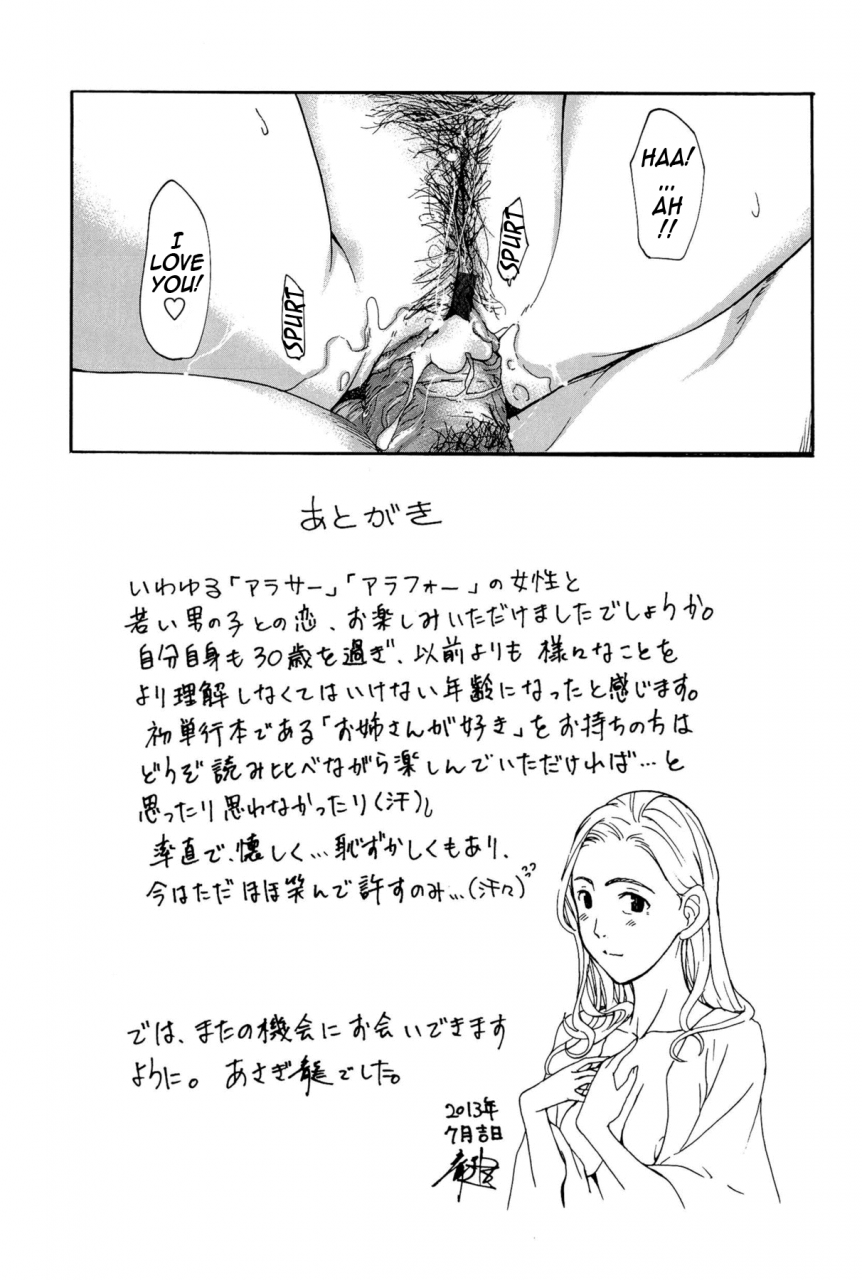 HAA!
...
AH
!!
SPURT
I
LOVE
YOU!
♡
SPURT
あとがき
いわゆる「アラサー」「アラフォー」の女性と
若い男の子との恋、お楽しみいただけましたでしょうか。
自分自身も30歳を過ぎ、以前よりも様々なことを
より理解しなくてはいけない年齢になったと感じます。
初単行本である「お姉さんが好き」をお持ちの方は
どうぞ読み比べながら楽しんでいただければ…と
思ったり思わなかったり(汗)。
率直で、懐しく…恥ずかしくもあり、
今はただほほ笑んで許すのみ…(汗々)
では、またの機会にお会いできます
ように。あさぎ龍でした。
2013年
7月吉日